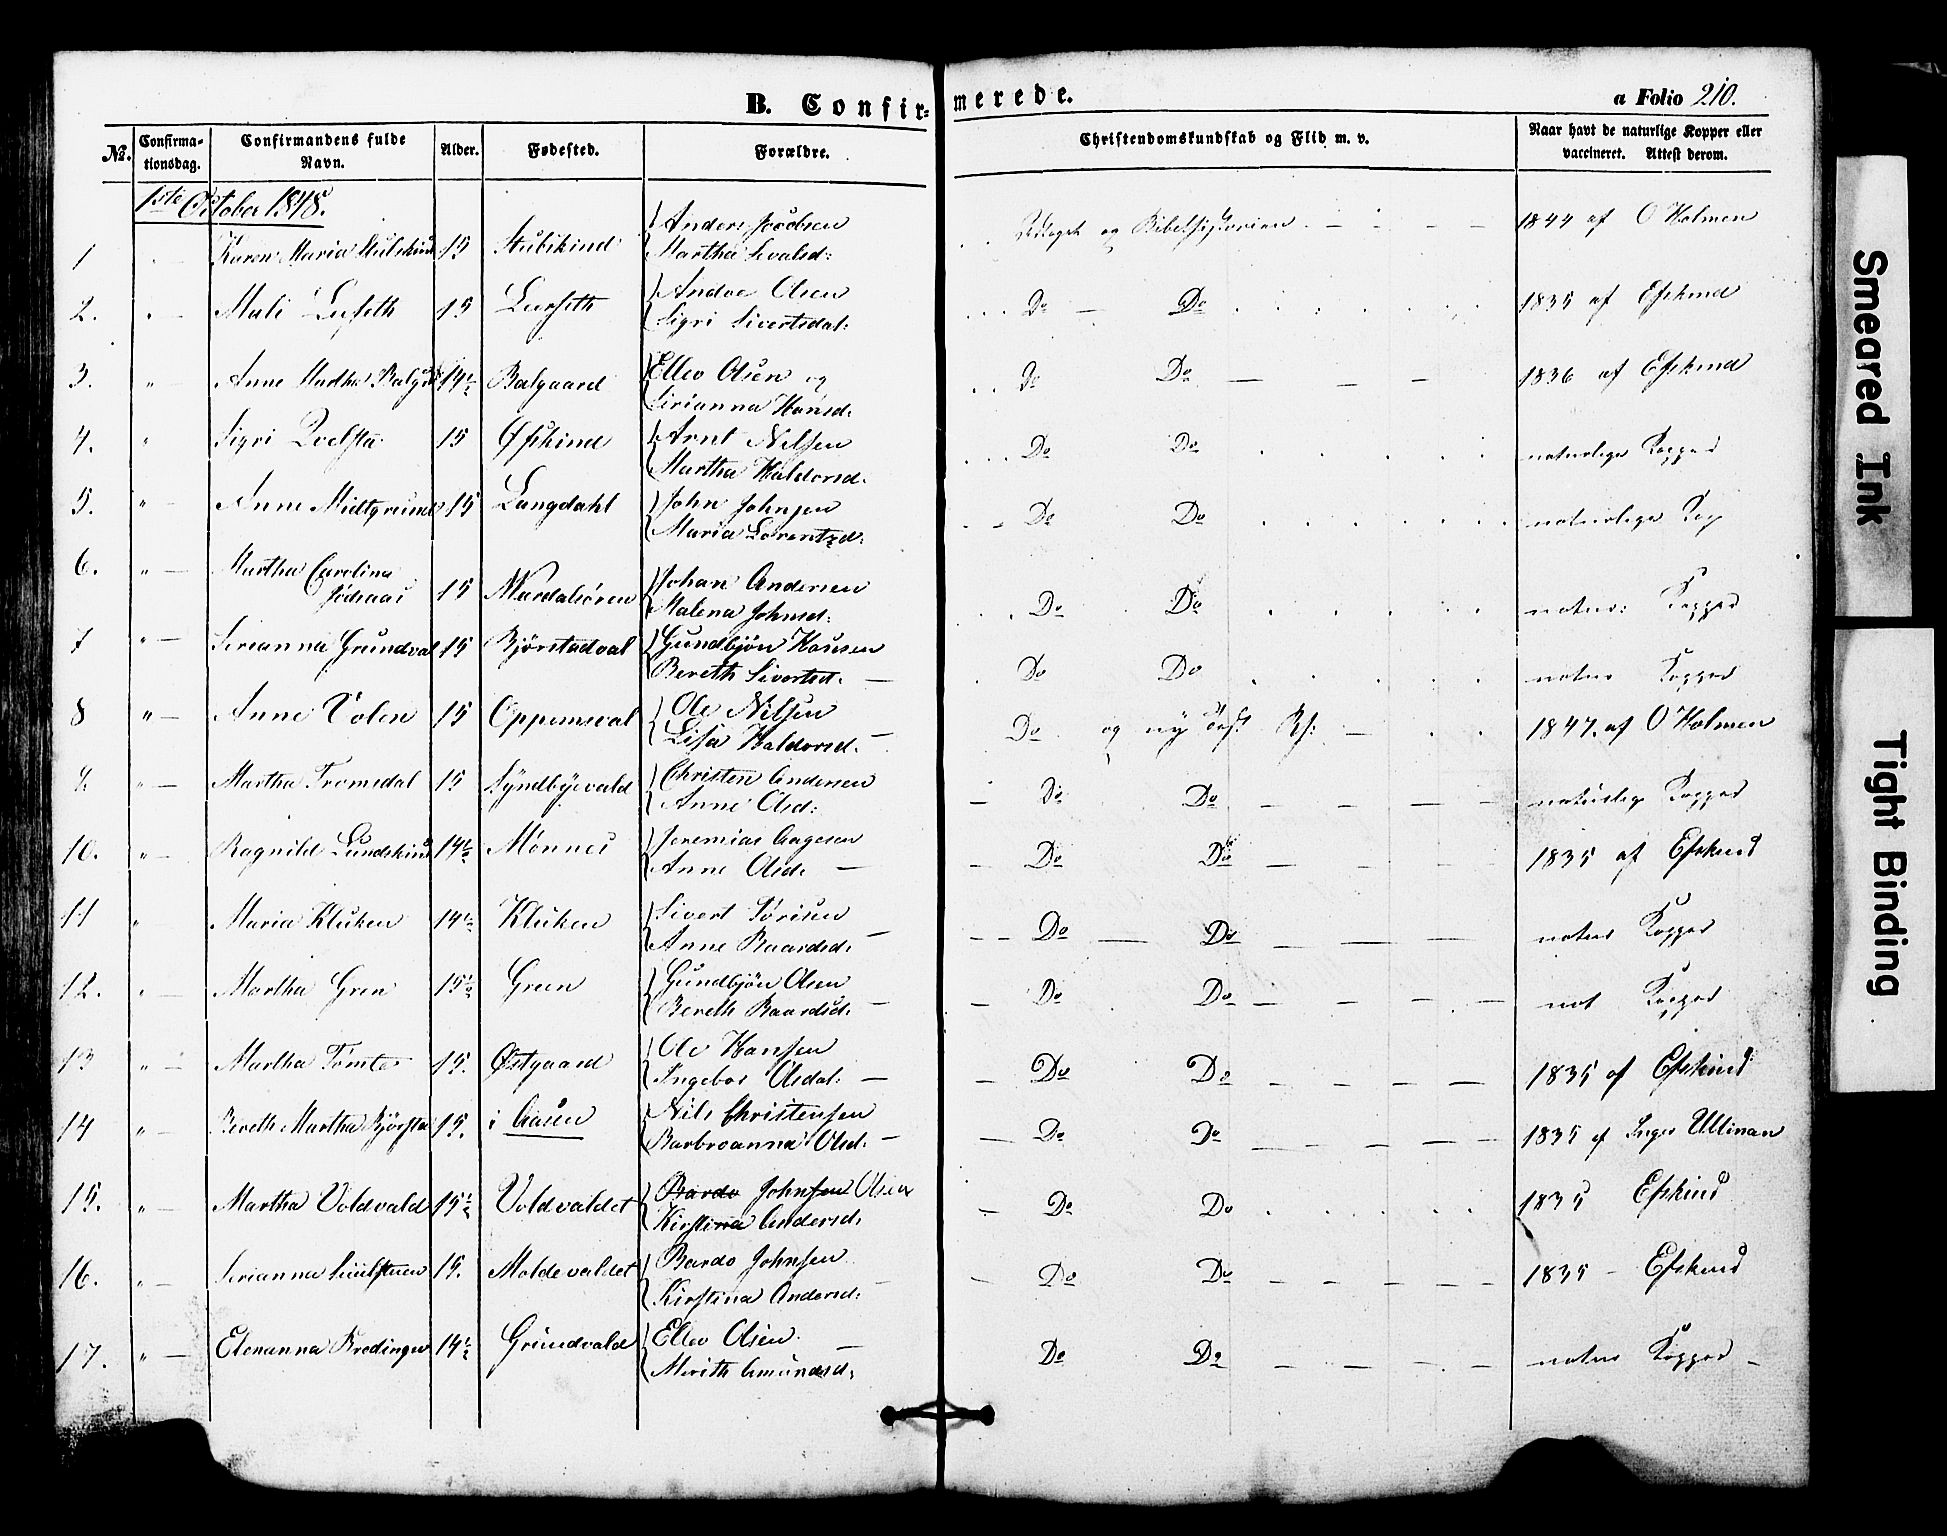 B. Confir- merede.
a Folio 210.
No. Confirma-tionsdag. Confirmandens fulde Navn. Alder. Fødested. Forældre. Christendomskundskab og Flid m. v. Naar havt de naturlige Kopper eller vaccineret. Attest derom.
1ste October 1848.
1 Karen Maria 15 Stubskind Anders Jacobsen 1844 af O Holmen
Martha Sivalsd: og Bibelhistorien
2. Mali Lefseth 15 Leirseth Andoe Olsen Do Do 1835 af Efskind
Sigri Sivertsdat:
3. " Anne Martha 14½ Balgaard Ellev Olsen og Do Do 1836 af Efskind
Sirianna Hansd.
4. " Sigri 15 Øfskind Arnt Nilsen Do Do naturlige Kopper
Martha Haldorsd.
5. " Anne Midtgrund 15 Langdahl John Johnsen Do Do naturlige Kop
Maria Lorentzd:
6. " Martha Carolina
15 Johan Andersen Do Do natur: Kopper
Malena Johnsd:
7 " Sirianna Grundval 15 Bjørstadval Gundbjön Hansen Do Do natur Kopper
Bereth Sivertsd.
8 " Anne Volen 15 Oppemsval Ole Nilsen Do og ny 1847 af O Holmen
Lisa Haldorsd.
9. " Martha Tromsdal 15 Syndbyevald Christen Andersen Do Do naturlige Kopper
Anne Olsd:
10. " Ragnild Lundskind 14½ Mönnes Jeremias Aagesen Do Do 1835 af Efskind
Anne Olsd.
11 " Maria Kluken 14½ Kluken Sivert Törisen Do Do natur Kopper
Anne Baardsd.
12. " Martha Green 15½ Green Gundbjön Olsen Do Do nat Kopper
Bereth Baardsd.
13 " Martha Tömte 15. Østgaard Ole Hansen Do Do 1835 af Efskind
Ingebor Olsdat:
14 " Bereth Martha 15. i Aasen Nils Christensen Do Do 1835 af Inger Ullinan
Barbroanna Olsd:
15. " Martha Voldvald 15½ Voldvaldet Bardo Johnsen Olsen Do Do 1835 Efskind
Kirstina Andersd.
16. " Serianna 15. Moldevaldet Bardo Johnsen Do Do 1835 – Efskind
Kirstina Andersd:
17. " Elenanna Bredinger 14½ Grundvald Ellev Olsen Do Do natur Kopper
Merith Amundsd.
Smeared Ink
Tight Binding